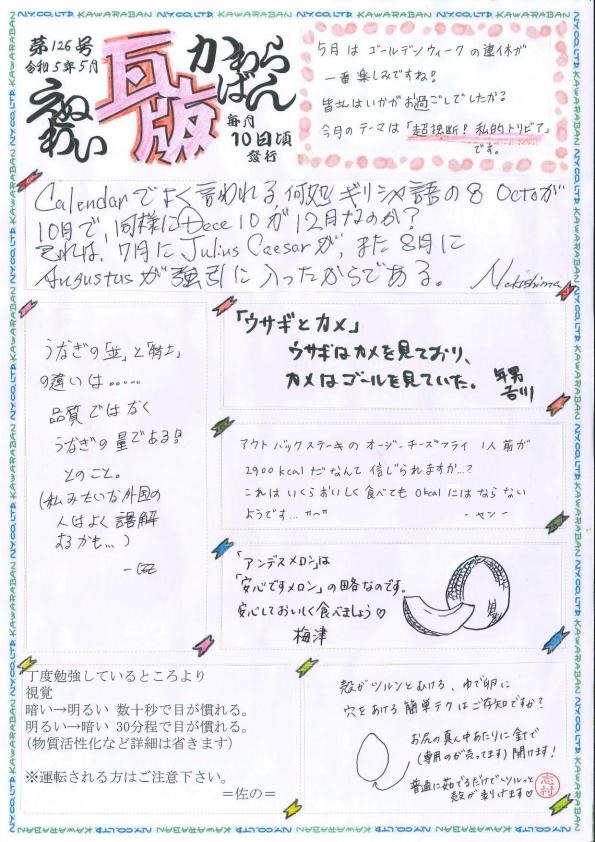 第126号
令和5年5月
えぬわい
瓦版
かわらばん
毎月
10日頃
発行
5月は ゴールデンウィークの連休が
一番楽しみですね!
皆さんはいかがお過ごしでしたか?
今月のテーマは「超独断!私的トリビア」
です。
Calendarでよく言われる、何処ギリシャ語の8 Octoが
10月で、同様にDece 10が12月なのか?
それは、7月にJulius Caesarが、また8月に
Augustusが強引に入ったからである。 Nakashima
「ウサギとカメ」
ウサギはカメを見ており、
カメはゴールを見ていた。
年男
吉川
うなぎの「並」と「特上」
の違いは……
品質ではなく
うなぎの量である!!
とのこと。
(私みたいな外国の
人はよく誤解
するかも…)
アウトバックステーキの オージーチーズフライ 1人前が
2900kcalだなんて信じられますか…?
これはいくらおいしく食べても 0kcalにはならない
ようです… "^"
-ヤン-
「アンデスメロン」は
「安心ですメロン」の略なのです。
安心しておいしく食べましょう♡
梅津
丁度勉強しているところより
視覚
暗い→明るい 数十秒で目が慣れる。
明るい→暗い 30分程で目が慣れる。
(物質活性化など詳細は省きます)
※運転される方はご注意下さい。
=佐の=
殻がツルンとむける、ゆで卵に
穴をあける簡単テクはご存知ですか?
お尻の真ん中あたりに針で
(専用のが売ってます)開けます!
普通に茹でるだけでツルっと
殻が剥けます♡
志村
NY.CO.,LTD KAWARABAN